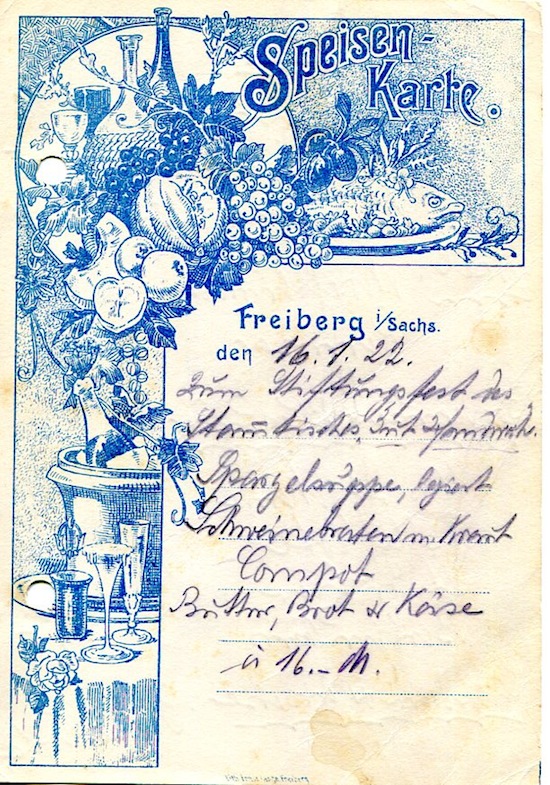 Speisen-
Karte.
Freiberg i/Sachs.
den 16.1.22.
Zum Stiftungsfest des
Stammtisches
Spargelsuppe, legiert
Schweinebraten m. Kraut
Compot
Butter, Brot & Käse
à 16.- M.